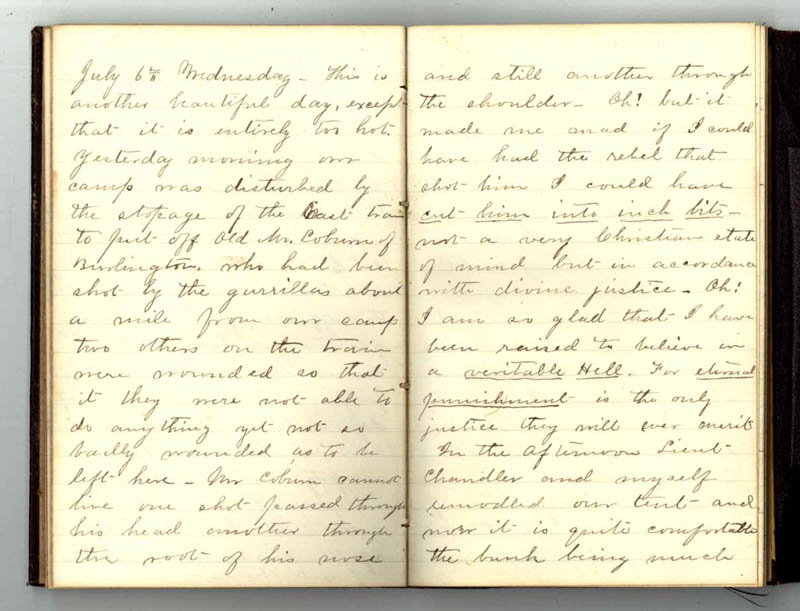 July 6th Wednesday - This is
another beautiful day, except
that it is entirely too hot.
Yesterday morning our
camp was disturbed by
the stopage of the East train
to put off Old Mr. Coburn of
Burlington. who had been
shot by the gurrillas about
a mile from our camp
two others on the train
were wounded so that
it they were not able to
do anything yet not so
badly wounded as to be
left here - Mr Coburn cannot
live one shot passed through
his head another through
the root of his nose
and still another through
the shoulder - Oh! but it
made me mad if I could
have had the rebel that
shot him I could have
cut him into inch bits -
not a very Christian state
of mind but in accordance
with divine justice - Oh!
I am so glad that I have
been raised to believe in
a veritable Hell. For eternal
punishment is the only
justice they will ever merit
In the afternoon Lieut
Chandler and myself
remodled our tent and
now it is quite comfortable
the bunk being much